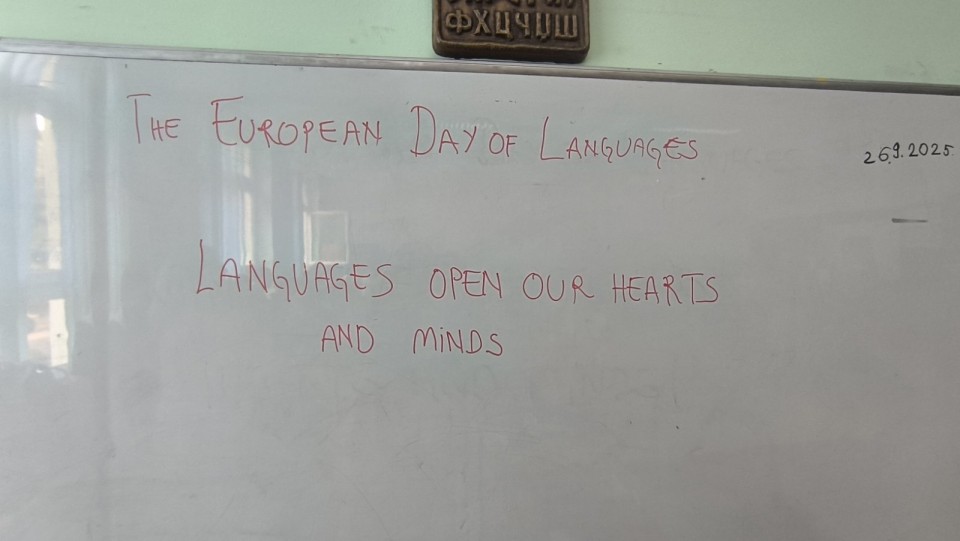 ФХЦЧЏШ
THE EUROPEAN DAY OF LANGUAGES
26.9.2025.
LANGUAGES OPEN OUR HEARTS
AND MINDS